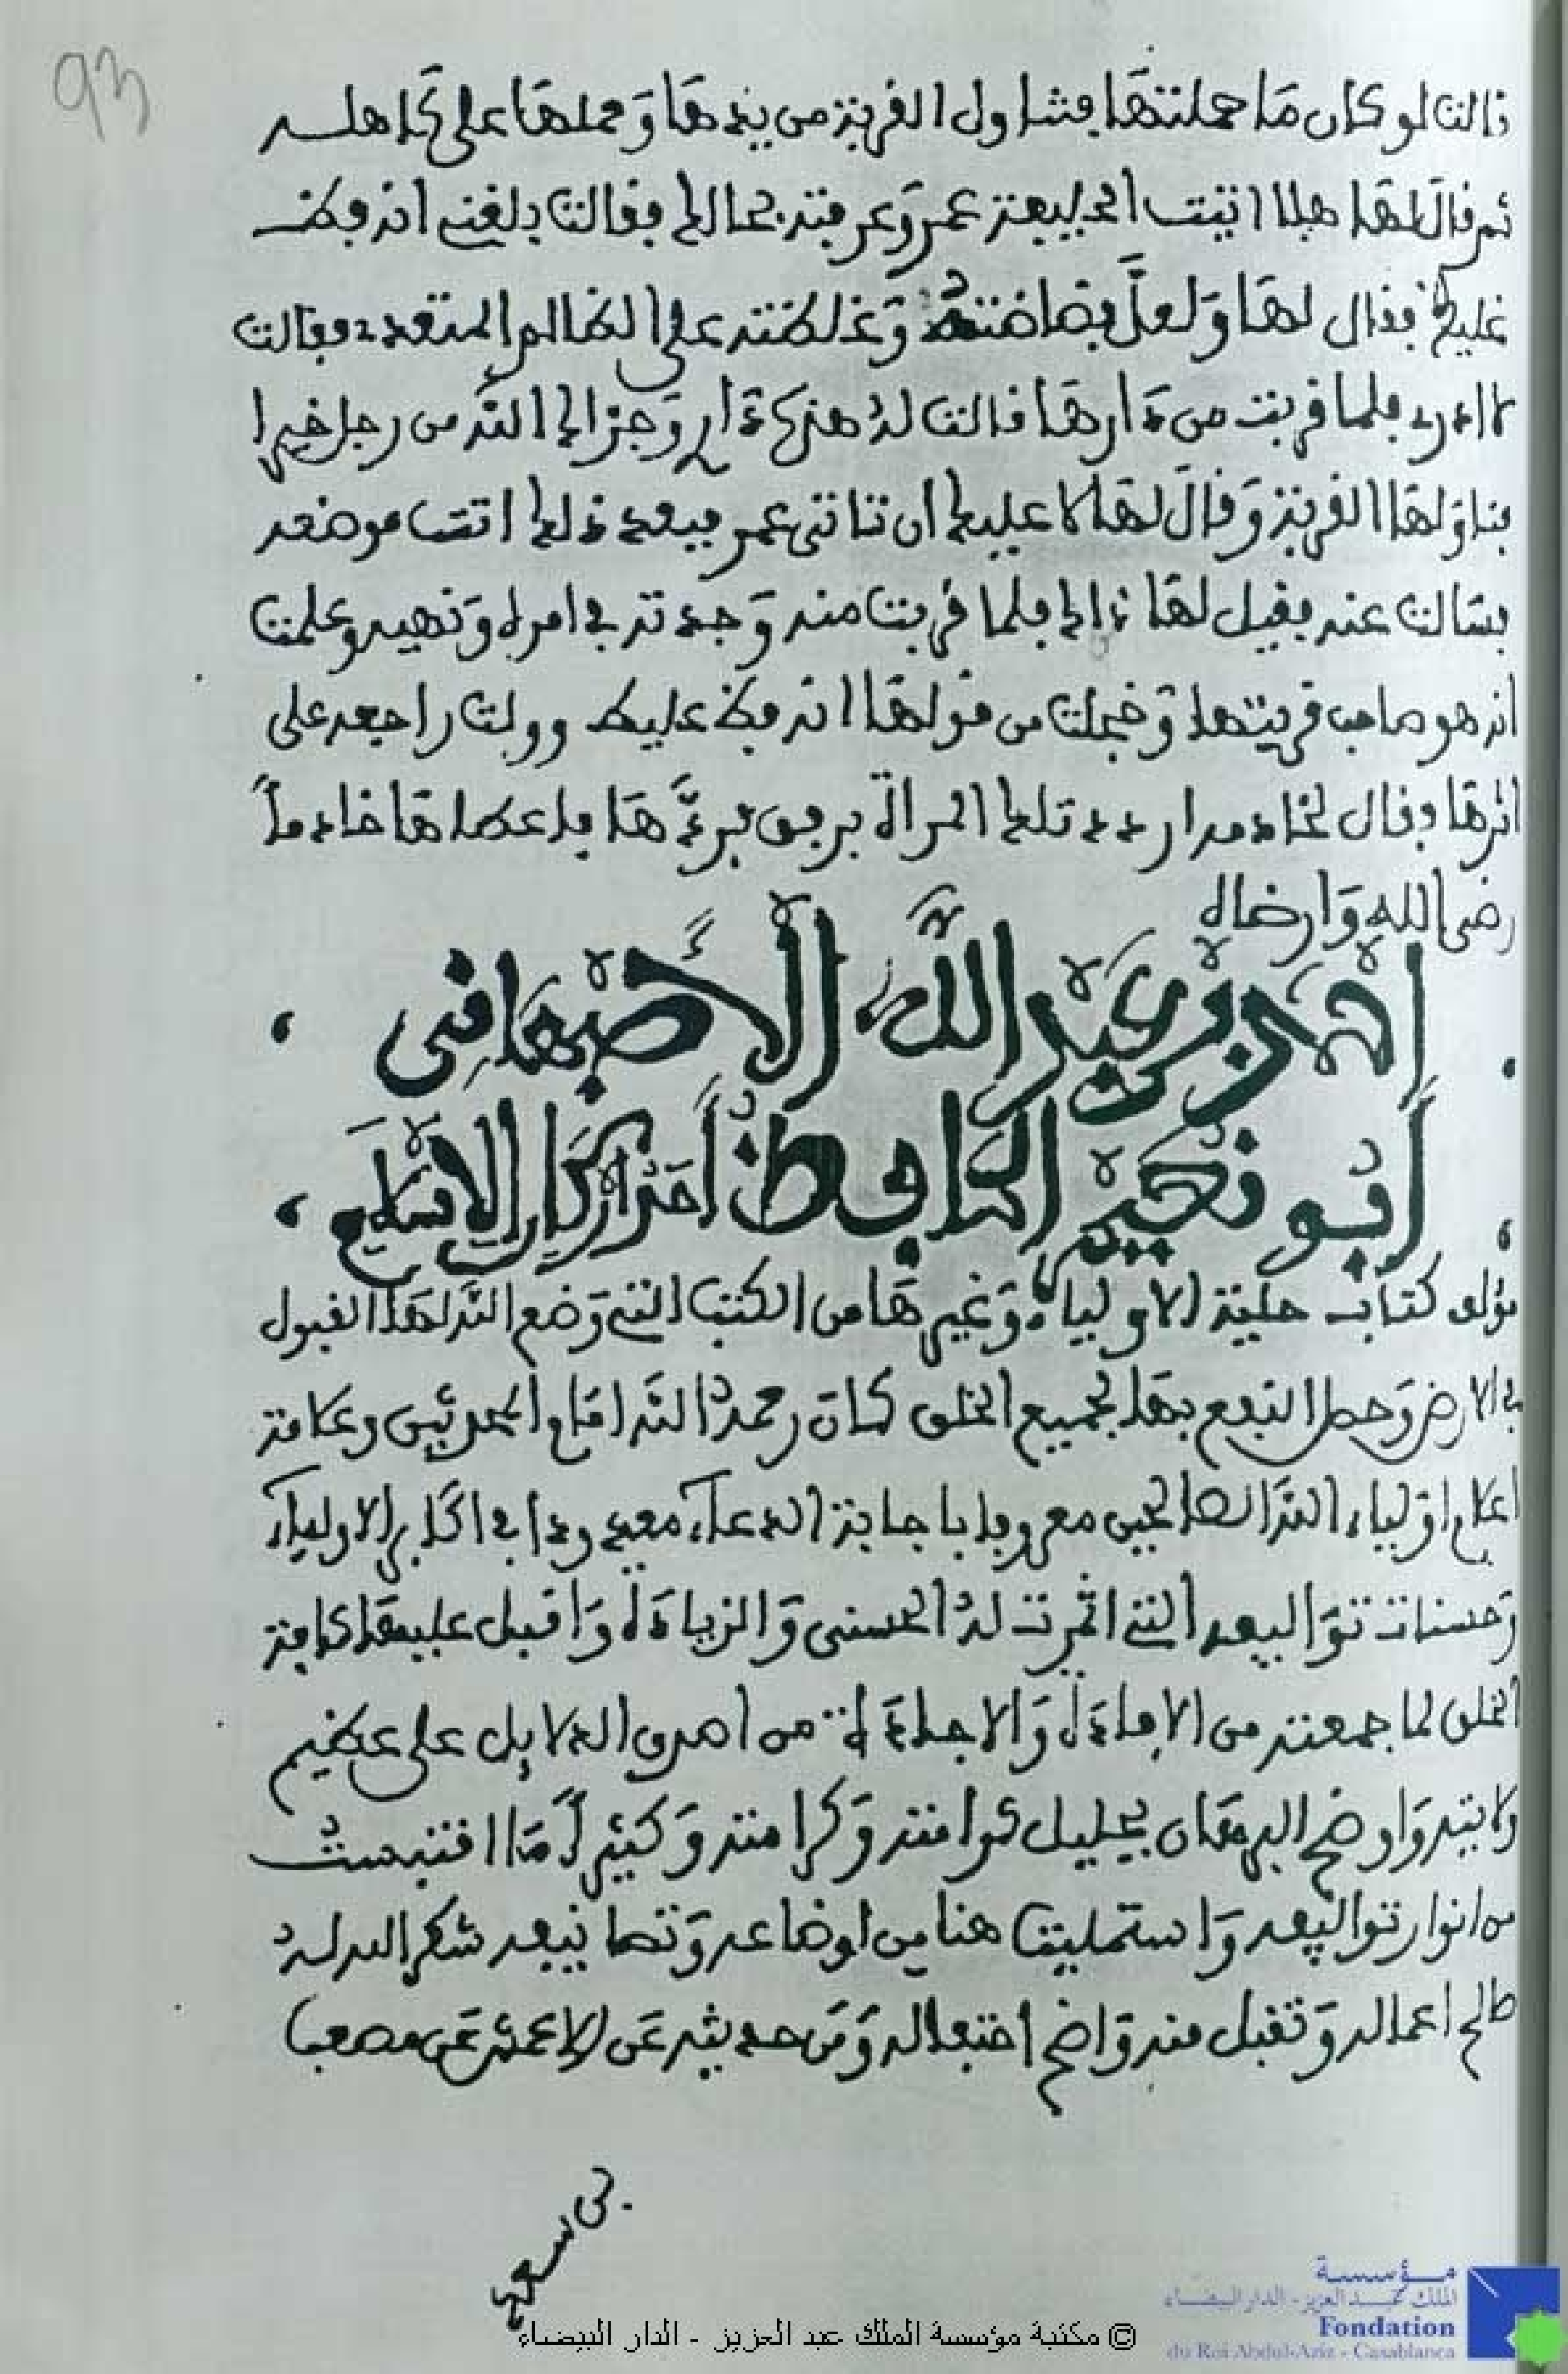 93
ذالك لو كان ما حملتها فتناول القربة من يدها وحملها على كاهله
ثم قال لها هلا اتيت الخليفة عمر وعرفته بحالك فقالت بلغني انه فظ
غليظ فقال لها ولعل فظاظته وغلظته على الظالم المتعدي فقالت
لا ادري فلما قربت من دارها قالت له هذه داري وجزاك الله من رجل خيرا
فناولها القربة وقال لها لا عليك ان تاتي عمر فبعد ذلك اتت موضعه
فسالت عنه فقيل لها ذاك فلما قربت منه وجدته في امره ونهيه وعلمت
انه هو صاحب قربتها وخجلت من قولها انه فظ عليك وولت راجعة على
اثرها وقال لخادمه اردد تلك المراة برفق فردها فاعطاها خادما
رضي الله وارضاه
احمد بن عبد الله الاصبهاني
ابو نعيم الحافظ احد اركان الاسلام
مؤلف كتاب حلية الاولياء وغيرها من الكتب التي وضع الله لها القبول
في الارض وحصل النفع بها لجميع الخلق كان رحمه الله امام المحدثين وعلامة
اعلام اولياء الله الصالحين معروفا باجابة الدعاء معدودا في اكابر الاولياء
وحسنات تواليفه التي اثمرت له الحسنى والزيادة واقبل عليها كافة
الخلق لما جمعته من الافادة والاجادة من اصدق الدلايل على عظيم
ولايته واوضح البرهان بجليل كرامته وكثيرا ما اقتبست
من انوار تواليفه واستمليت هنا من اوضاعه وتصانيفه شكر الله له
صالح اعماله وتقبل منه واضح افعاله ومن حديثه عن الاعمش عن مصعب
بن سعد
© مكتبة مؤسسة الملك عبد العزيز - الدار البيضاء
مؤسسة
الملك عبد العزيز - الدار البيضاء
Fondation
du Roi Abdul-Aziz - Casablanca